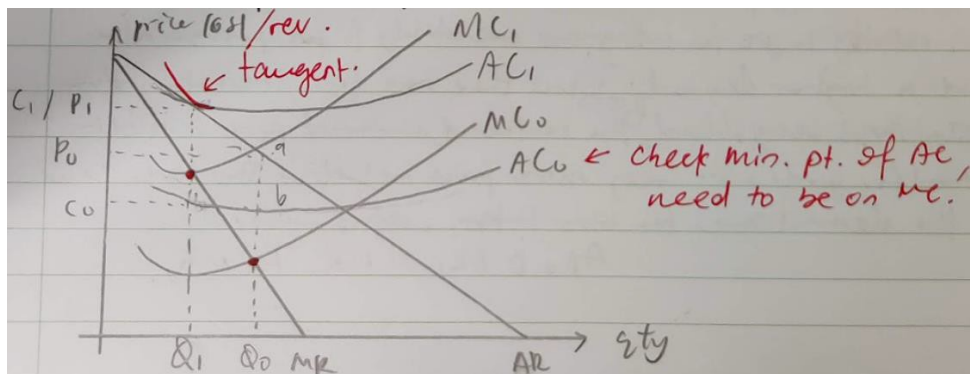 price/cost/rev.
MC₁
tangent.
AC₁
C₁ / P₁
MC₀
P₀
a
AC₀ ← check min. pt. of AC,
need to be on MC.
C₀
b
Q₁ Q₀ MR AR qty